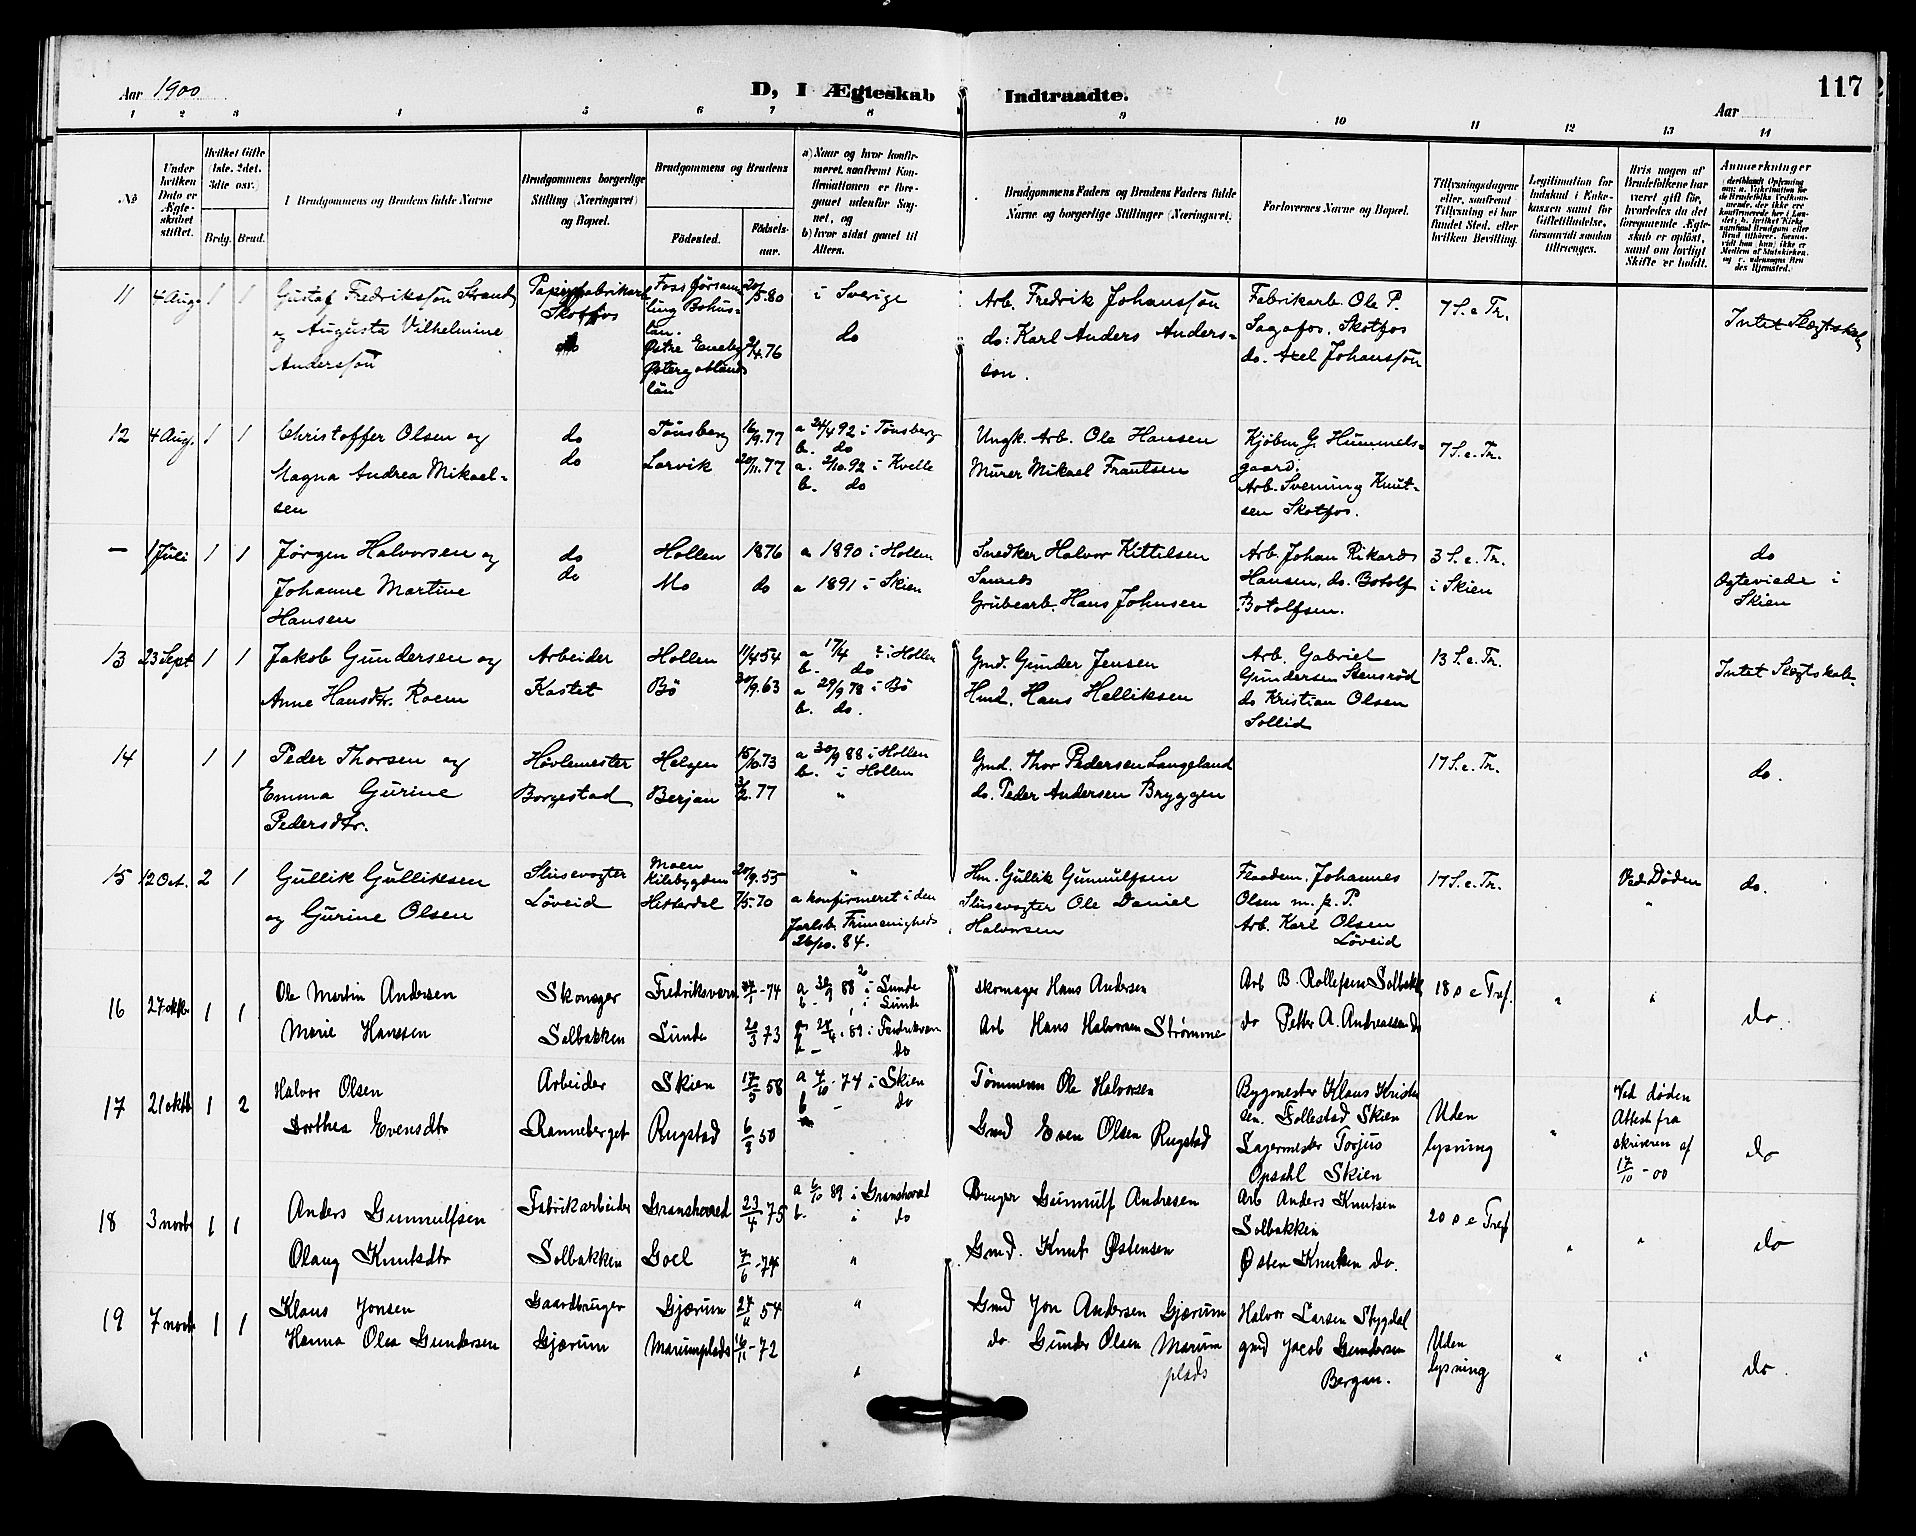 Aar 1900
D, I Ægteskab Indtraadte.
117
Aar
1 2 3 4 5 6 7 8 9 10 11 12 13 14
No
Under hvilken Dato er Ægteskabet stiftet.
Hvilket Gifte (1ste, 2det, 3die osv.)
Brdg. Brud.
I Brudgommens og Brudens fulde Navne
Brudgommens borgerlige Stilling (Næringsvei) og Bopæl.
Brudgommens og Brudens
Fødested. Fødselsaar.
a) Naar og hvor konfirmeret, samt om Konfirmationen er foregaaet udenfor Sognet, og
b) hvor sidst gaaet til Alters.
Brudgommens Faders og Brudens Faders fulde Navne og borgerlige Stillinger (Næringsvei).
Forlovernes Navne og Bopæl.
Tillysningsdagene eller, saafremt Tillysning ei har fundet Sted, efter hvilken Bevilling.
Legitimation for Indskud i Enkekassen samt for Giftetilladelse, forsaavidt saadan tiltrænges.
Hvis nogen af Brudefolkene har været gift før, hvorledes da det foregaaende Ægteskab er opløst, samt om lovligt Skifte er holdt.
Anmærkninger
11 4 Aug. 1 1 Gustaf Fredriksson Strand Papirfabrikarb. Foss Jørsam- 20/5.80 i Sverige Arb. Fredrik Johansson Fabrikarb. Ole P. 7 S. e. Tr. Intet Slægtskab
og Augusta Vilhelmine Skotfos ling Bohus- do do. Karl Anders Anders- Sagafos, Skotfos
Andersson do län. Östre Eneby 2/4.76 son. do. Axel Johansson
Östergotlands
län
12 4 Aug. 1 1 Christoffer Olsen og do Tønsberg 16/9.77 a 24/4 92 i Tønsberg Ungk. Arb. Ole Hansen Kjøbm G. Hummels- 7 S. e. Tr.
b. do gaard.
Magna Andrea Mikael- do Larvik 20/11.77 a. 2/10.92 i Kvelle Murer Mikael Frantsen Arb. Svenning Knut-
sen b. do sen Skotfos.
— 1 Juli 1 1 Jørgen Halvorsen og do Hollen 1876 a 1890 i Hollen Snedker Halvor Kittilsen Arb. Johan Rikard 3 S. e. Tr. do
Johanne Martine do Mo do a 1891 i Skien Hansen, do. Botolf i Skien Ogteviede i
Hansen Grubearb. Hans Johnsen Botolfsen. Skien
13 23 Sept 1 1 Jakob Gundersen og Arbeider Hollen 11/4 54 a 17/4 i Hollen Gmd. Gunder Jensen Arb. Gabriel 13 S. e. Tr. Intet Slægtskab.
b. do Gundersen Stensrød
Anne Hansdtr. Roem Kastet Bø 30/9.63 a 29/9 78 i Bø Hmd. Hans Helliksen do Kristian Olsen
b. do. Sollid
14 1 1 Peder Thorsen og Høvlemester Helgen 15/6.73 a 30/9 88 i Hollen Gmd. Thor Pedersen Langeland 17 S. e. Tr. do.
b. i Hollen
Emma Gurine Borgestad Berjan 3/2.77 " do. Peder Andersen Bryggen
Pedersdtr.
15 12 Oct. 2 1 Gullik Gulliksen Slusevogter Moen Kilebygden 20/9.55 " Hm. Gullik Gunnulfsen Flaadem. Johannes 17 S. e. Tr. Ved Døden do.
og Gurine Olsen Løveid Hitterdal 7/5.70 a konfirmeret i den Slusevogter Ole Daniel Olsen m. p. P. "
Jarlsb. Frimenigheds Halvorsen Arb. Karl Olsen
26/10. 84. Løveid
16 27 oktb 1 1 Ole Martin Andersen Skomager Fredriksværn 27/1-74 a 30/9 88 i Sunde Skomager Hans Andersen Arb B. Rollefsen Solbakk 18 s e Tref. " " do
b - i Sunde
Marie Hansen Solbakken Lunde 20/3 73 a 28/4 89 i Fredriksværn Arb Hans Halvorsen Strømme do Petter A. Andreassen do
b - do
17 21 oktb 1 2 Halvor Olsen Arbeider Skien 17/5 58 a 4/10-74 i Skien Tømmerm Ole Halvorsen Bygmester Klaus Krist- Uden " Ved døden do
b - do sen. Follestad Skien lysning Attest fra
Dorthea Evensdtr Ranneberget Rugstad 6/8 50 Gmd Even Olsen Rugstad Lagermester Torjus skriveren af
Opsahl Skien 17/10-00
18 3 novbr 1 1 Anders Gunnulfsen Fabrikarbeider Granshæred 23/4 75 a 6/10 89 i Granshæred Bruger Gunnulf Andresen Arb Anders Knutsen 20 s e Tref " " do
b. i do Solbakken
Olaug Knutsdtr Solbakken Goel 7/6-74 " Gmd. Knut Østensen Østen Knutsen do.
19 7 novbr 1 1 Klaus Jonsen Gaardbruger Gjærum 27/11 54 " Gmd Jon Andersen Gjærum Halvor Larsen Stygdal Uden " " do
Hanna Olea Gundersen Gjærum Marumplads 16/11-72 " do Gunder Olsen Marum gmd Jacob Gundersen lysning
plads Bergan.